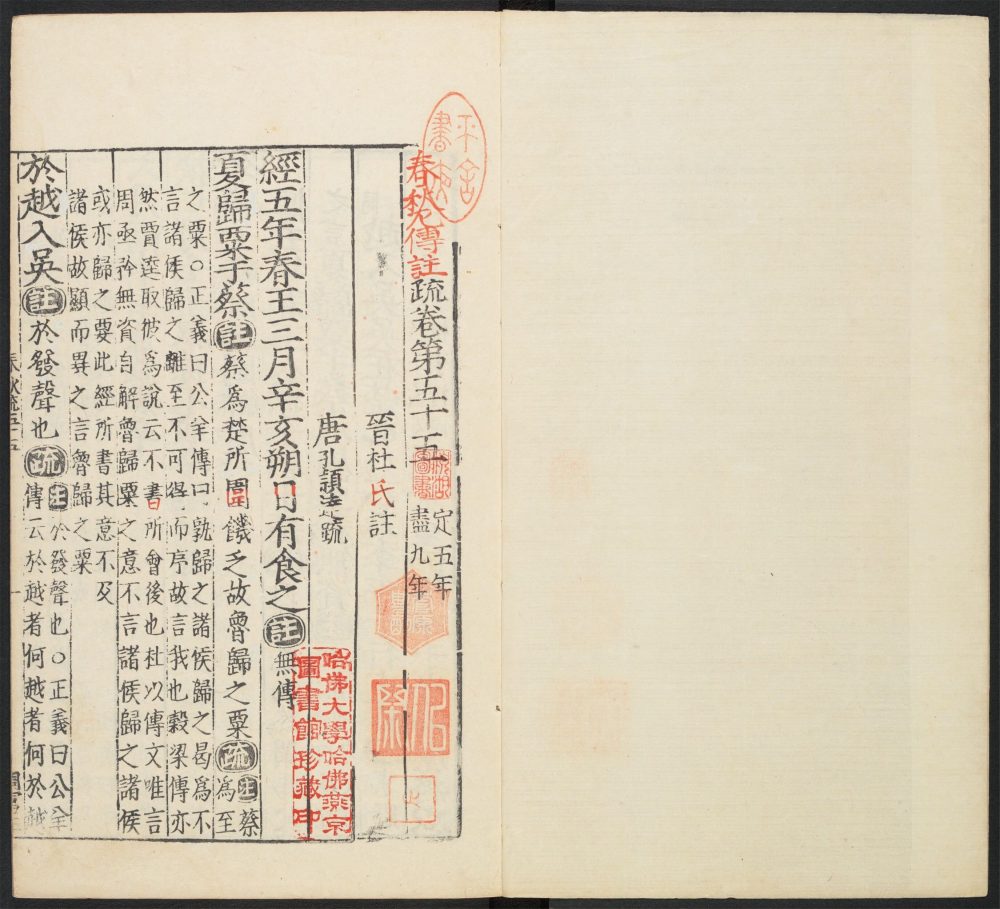 春秋傳註疏卷第五十五 定五年盡九年
晉杜氏註
唐孔穎達疏
經五年春王三月辛亥朔日有食之註無傳
夏歸粟于蔡註蔡爲楚所圍饑乏故魯歸之粟疏注蔡爲至
之粟○正義曰公羊傳曰孰歸之諸侯歸之曷爲不
言諸侯歸之離至不可得而序故言我也穀梁傳亦
然賈逵取彼爲說云不書所會後也杜以傳文唯言
周亟矜無資自解魯歸粟之意不言諸侯歸之諸侯
或亦歸之要此經所書其意不及
諸侯故顯而異之言魯歸之粟
於越入吳註於發聲也疏注於發聲也○正義曰公羊
傳云於越者何越者何於越
哈佛大學哈佛燕京
圖書館珍藏印